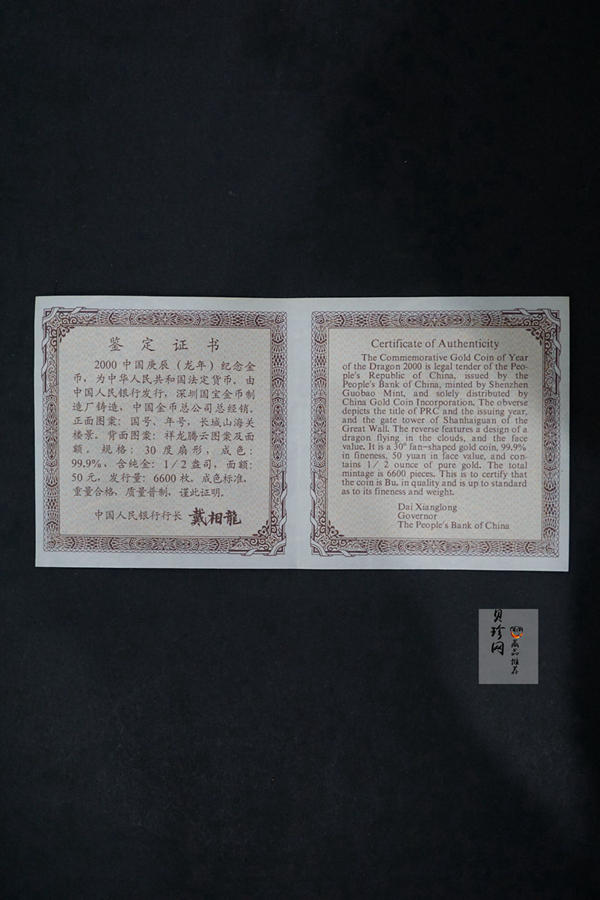 鉴定证书
2000中国庚辰（龙年）纪念金
币，为中华人民共和国法定货币。由
中国人民银行发行，深圳国宝金币制
造厂铸造，中国金币总公司总经销。
正面图案：国号、年号，长城山海关
楼景。背面图案：祥龙腾云图案及面
额。规格：30度扇形，成色：
99.9%，含纯金：1/2盎司，面额：
50元，发行量：6600枚。成色标准，
重量合格、质量普制，谨此证明。
中国人民银行行长 戴相龍
Certificate of Authenticity
The Commemorative Gold Coin of Year
of the Dragon 2000 is legal tender of the Peo-
ple's Republic of China, issued by the
People's Bank of China, minted by Shenzhen
Guobao Mint, and solely distributed by
China Gold Coin Incorporation. The obverse
depicts the title of PRC and the issuing year,
and the gate tower of Shanhaiguan of the
Great Wall. The reverse features a design of a
dragon flying in the clouds, and the face
value. It is a 30° fan-shaped gold coin, 99.9%
in fineness, 50 yuan in face value, and con-
tains 1/2 ounce of pure gold. The total
mintage is 6600 pieces. This is to certify that
the coin is Bu. in quality and is up to standard
as to its fineness and weight.
Dai Xianglong
Governor
The People's Bank of China
贝珍网
藏品推荐